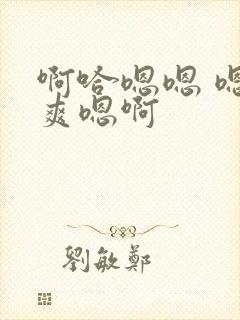 啊哈嗯嗯 嗯
爽嗯啊
劉敏鄭